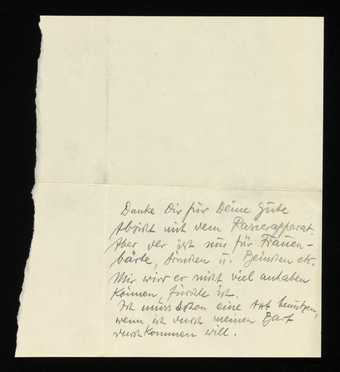 Danke Dir für Deine Gute
Absicht mit dem Rasierapparat.
Aber der ist nur für Frauen-
bärte, u. Beinchen etc.
Mir wird er nicht viel anhaben
können, fürchte ich.
Ich muss schon eine Axt benützen,
wenn ich durch meinen Bart
durchkommen will.